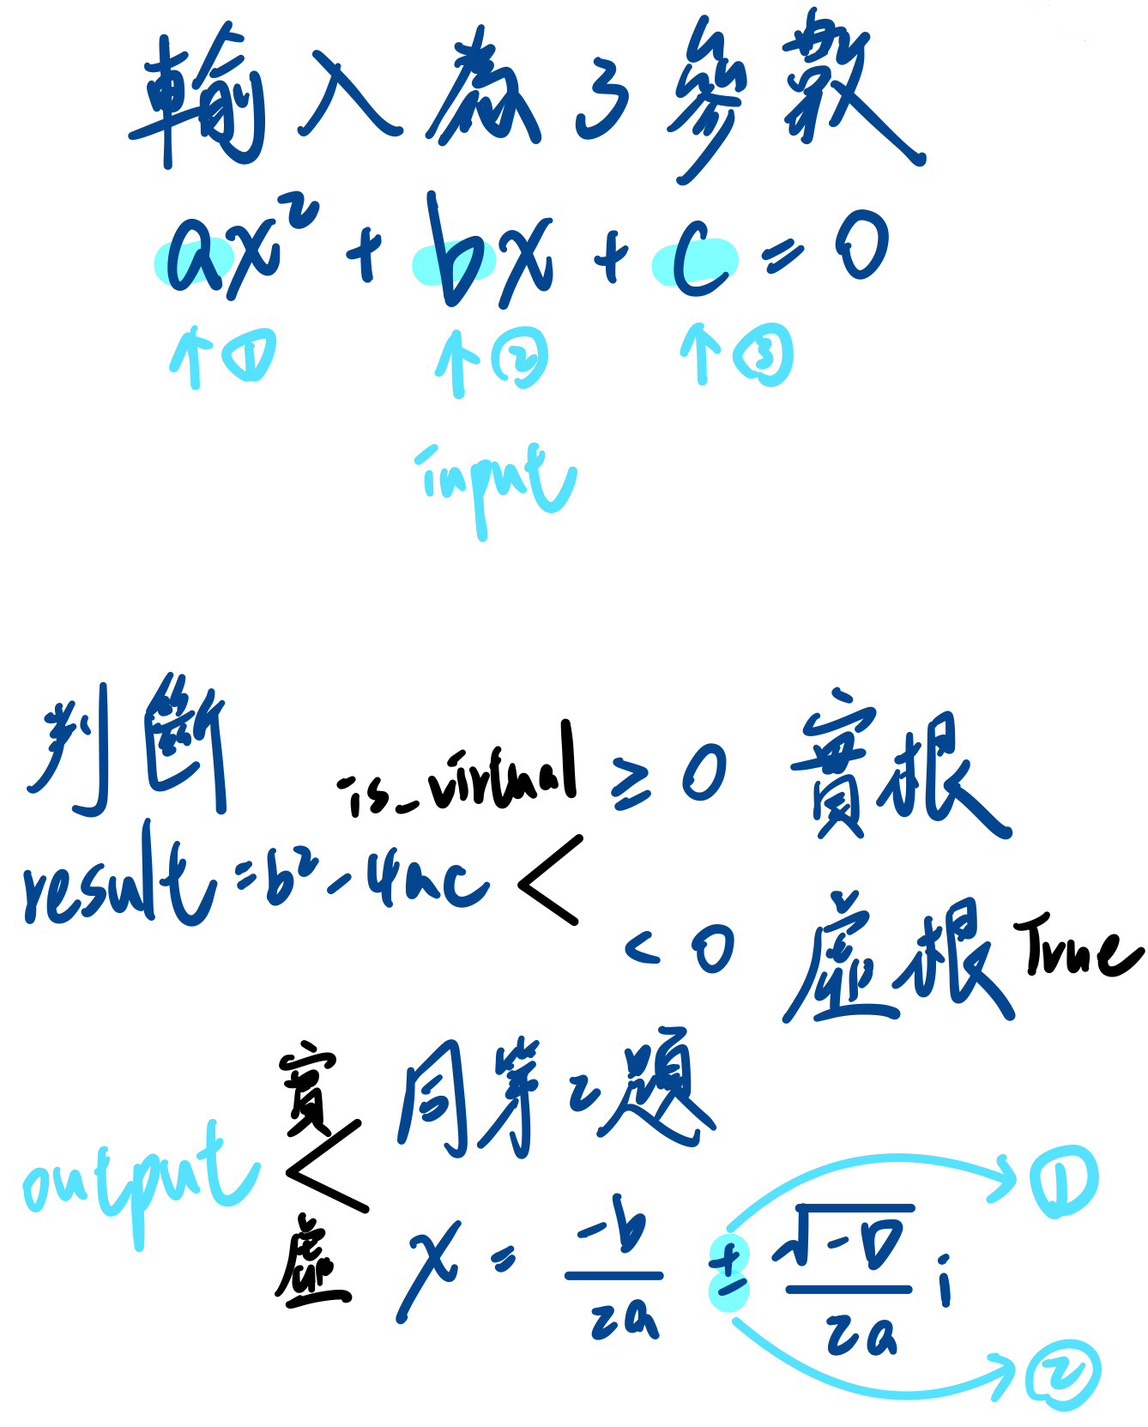 輸入為3參數
ax² + bx + c = 0
↑① ↑② ↑③
input
判斷
is_virtual ≥ 0 實根
result = b² - 4ac <
< 0 虛根 True
實 同第2題
output <
虛 x = -b/2a ± √-D/2a i
①
②